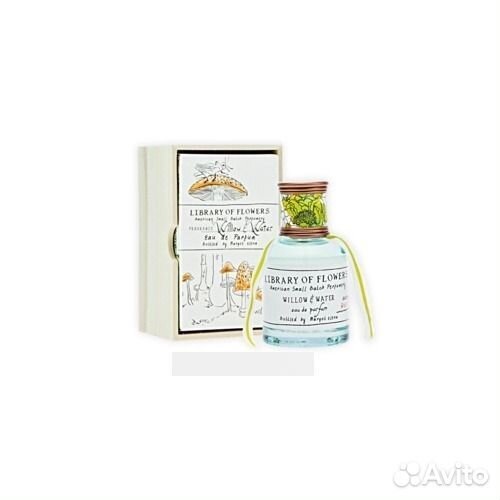 LIBRARY OF FLOWERS
American Small Batch Perfumery
Willow & Water
Eau de Parfum
Bottled by Margot Elena
LIBRARY OF FLOWERS
American Small Batch Perfumery
WILLOW & WATER
eau de parfum
Bottled by Margot Elena
Avito